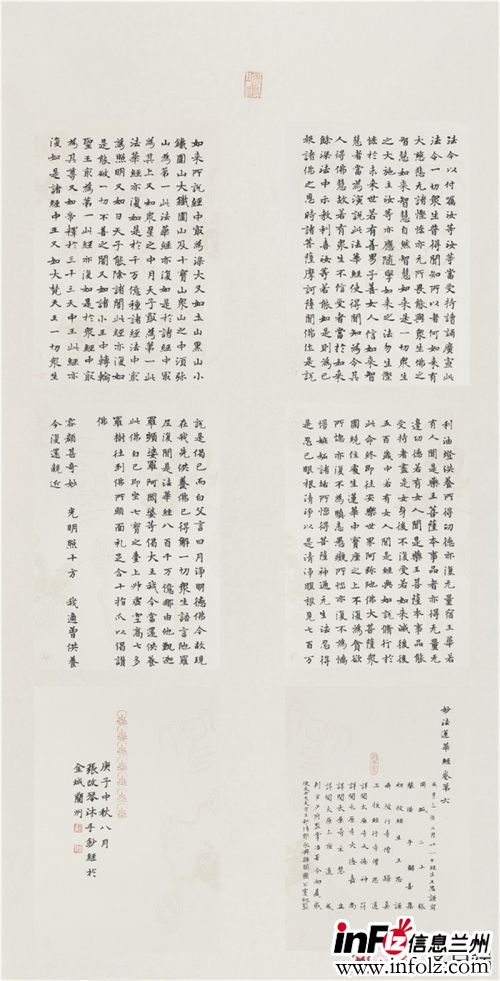 法令以付囑汝等汝等當受持讀誦廣宣此
法令一切衆生普得聞知所以者何如來有
大慈悲无諸慳悋亦无所畏能與衆生佛之
智慧如來智慧自然智慧如來是一切衆生
之大施主汝等亦應隨學如來之法勿生慳
悋於未來世若有善男子善女人信如來智
慧者當為演說此法華經使得聞知為令其
人得佛慧故若有衆生不信受者當於如來
餘深法中示教利喜汝等若能如是則為已
報諸佛之恩時諸菩薩摩訶薩聞佛作是說
如來所說經中冣為深大又如土山黑山小
鐵圍山大鐵圍山及十寶山衆山之中須弥
山為第一此法華經亦復如是於諸經中冣
為其上又如衆星之中月天子冣為第一此
法華經亦復如是於千万億種諸經法中冣
為照明又如日天子能除諸闇此經亦復如
是能破一切不善之闇又如諸小王中轉輪
聖王冣為第一此經亦復如是於衆經中冣
為其尊又如帝釋於三十三天中王此經亦
復如是諸經中王又如大梵天王一切衆生
利油燈供養所得功德亦復无量宿王華若
有人聞是藥王菩薩本事品者亦得无量无
邊功德若有女人聞是藥王菩薩本事品能
受持者盡是女身後不復受若如來滅後後
五百歲中若有女人聞是經典如說脩行於
此命終即往安樂世界阿弥陁佛大菩薩衆
圍繞住處生蓮華中寶座之上不復為貪欲
所惱亦復不為瞋恚愚癡所惱亦復不為憍
慢嫉妬諸垢所惱得菩薩神通无生法忍得
是忍已眼根清淨以是清淨眼根見七百万
說是偈已而白父言日月淨明德佛今故現
在我先供養佛已得解一切衆生語言陁羅
尼復聞是法華經八百千万億那由他甄迦
羅頻婆羅阿閦婆等偈大王我今當還供養
此佛白已即坐七寶之臺上昇虛空高七多
羅樹往到佛所頭面礼足合十指爪以偈讚
佛
容顏甚奇妙 光明照十方 我適曾供養
今復還親近
妙法蓮華經卷第六
初校經生王思謙
詳閱太原寺大德神符
詳閱太原寺大德嘉尚
詳閱太原寺主慧立
詳閱太原寺上座道成
庚子中秋八月
張改琴沐手敬經於
金城蘭州
infLz信息兰州
www.infolz.com